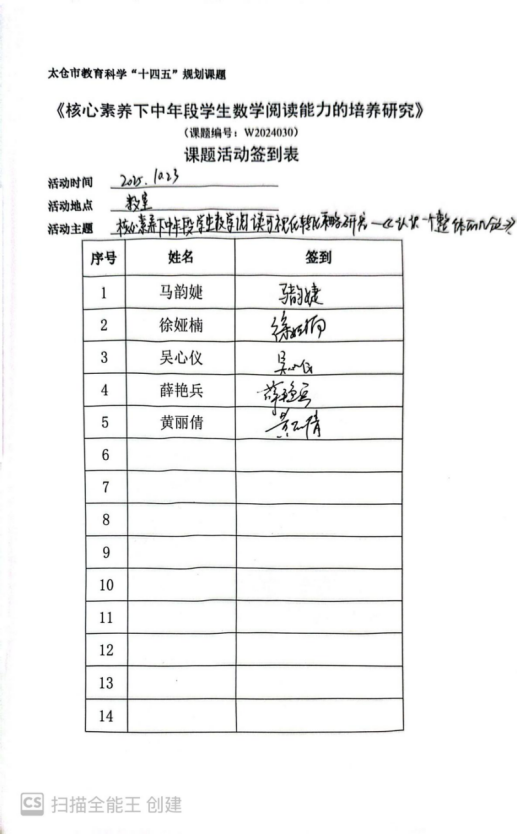 太仓市教育科学“十四五”规划课题
《核心素养下中年段学生数学阅读能力的培养研究》
（课题编号：W2024030）
课题活动签到表
活动时间 2025.10.23
活动地点 教室
活动主题 核心素养下中年段学生数学阅读可视化转化策略研究—《认识一个整体的几分之》
序号 姓名 签到
1 马韵婕 马韵婕
2 徐娅楠 徐娅楠
3 吴心仪 吴心仪
4 薛艳兵 薛艳兵
5 黄丽倩 黄丽倩
6
7
8
9
10
11
12
13
14
CS 扫描全能王 创建